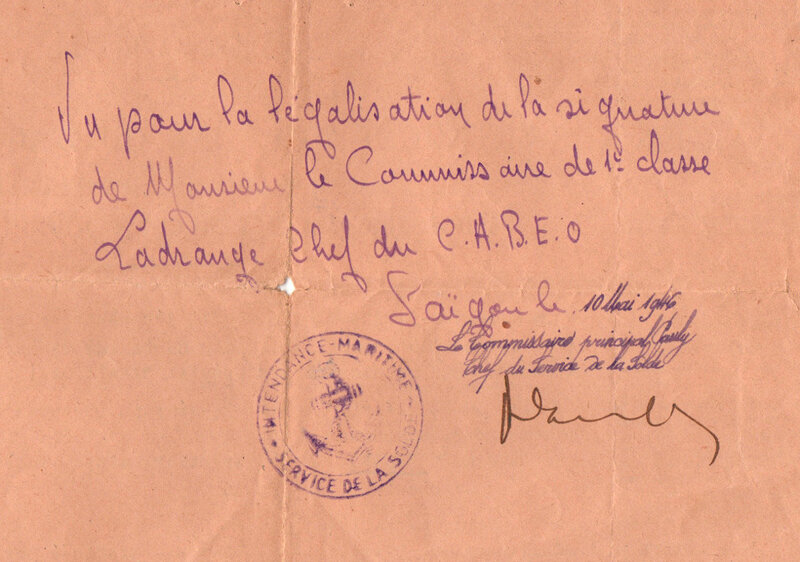 Vu pour la légalisation de la signature
de Monsieur le Commissaire de 1e classe
Ladrange Chef du C.A.B.E.O
Saïgon le 10 Mai 1946
Le Commissaire principal Pauly
Chef du Service de la Solde
INTENDANCE-MARITIME
SERVICE DE LA SOLDE